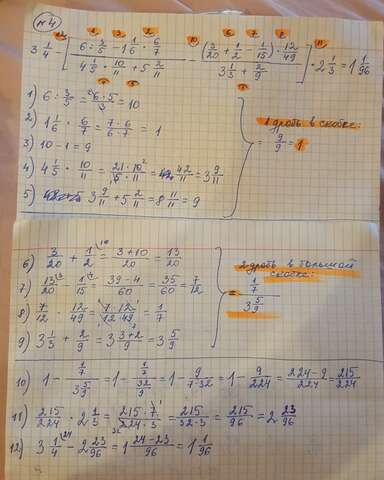 №4
3 1/4 - [ (6 : 3/5 - 1 1/6 · 6/7) / (4 1/5 · 10/11 + 5 2/11) - ((3/20 + 1/2 - 1/15) · 12/49) / (3 1/3 + 2/9) ] · 2 1/3 = 1 1/96
1) 6 : 3/5 = 6·5/3 = 10
2) 1 1/6 · 6/7 = 7·6/6·7 = 1
3) 10 - 1 = 9
4) 4 1/5 · 10/11 = 21·10/5·11 = 42/11 = 3 9/11
5) 3 9/11 + 5 2/11 = 8 11/11 = 9
1 дробь в скобке:
= 9/9 = 1
6) 3/20 + 1/2 = 3+10/20 = 13/20
7) 13/20 - 1/15 = 39-4/60 = 35/60 = 7/12
8) 7/12 · 12/49 = 7·12/12·49 = 1/7
9) 3 1/3 + 2/9 = 3 3+2/9 = 3 5/9
2 дробь в большой
скобке:
= 1/7 / 3 5/9
10) 1 - 1/7 / 3 5/9 = 1 - 1/7 / 32/9 = 1 - 9/7·32 = 1 - 9/224 = 224-9/224 = 215/224
11) 215/224 · 2 1/3 = 215·7/224·3 = 215/32·3 = 215/96 = 2 23/96
12) 3 1/4 - 2 23/96 = 1 24-23/96 = 1 1/96